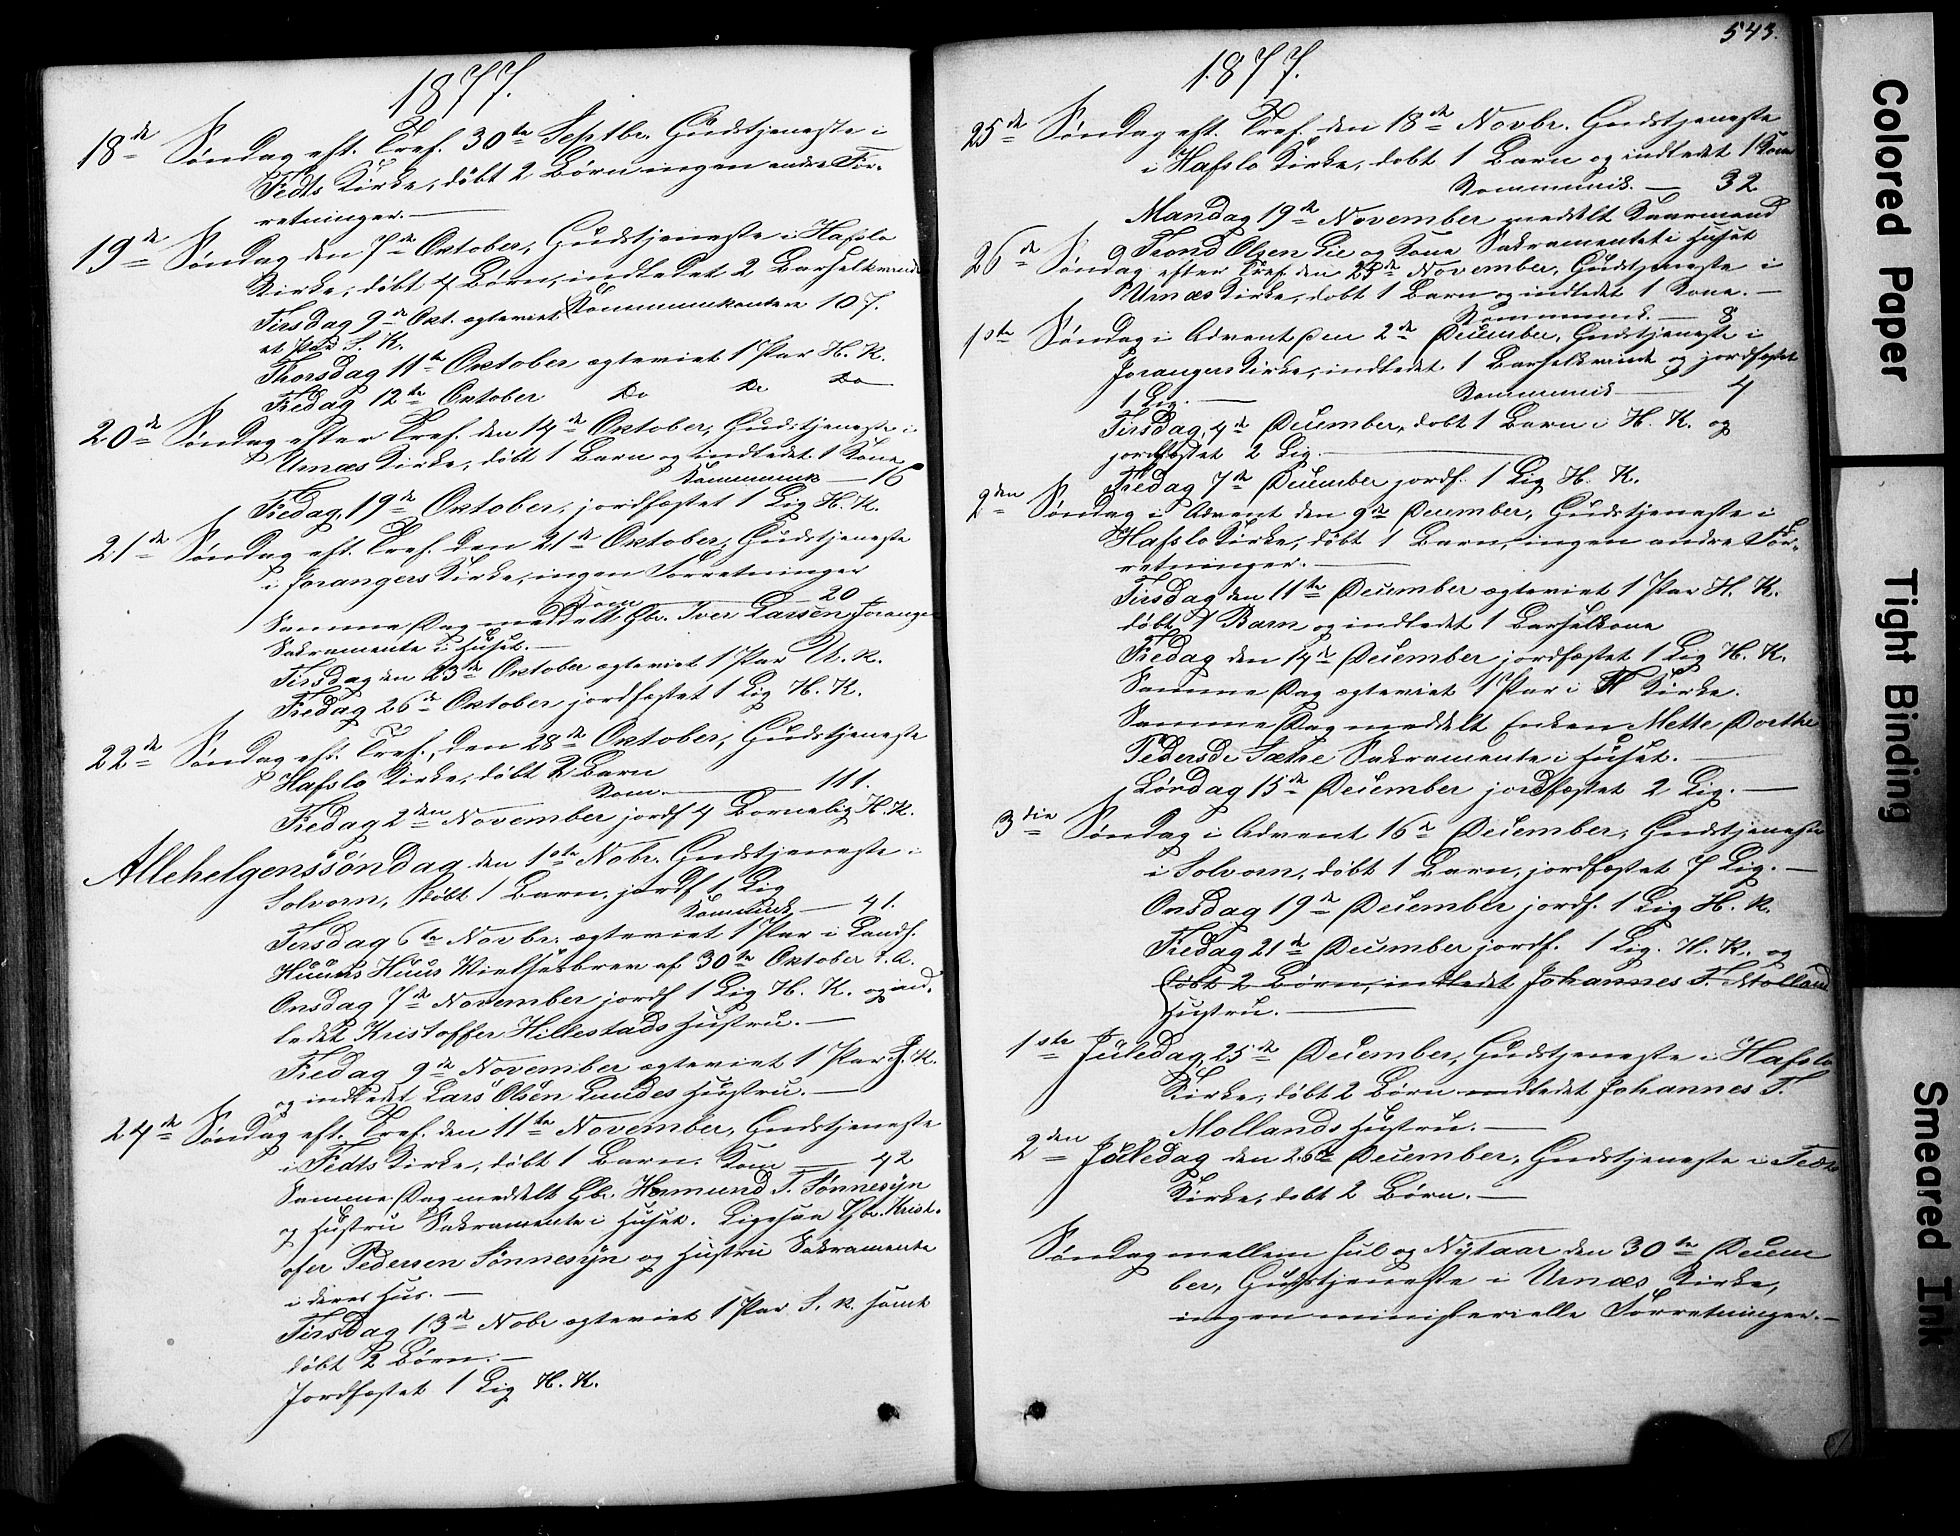 1877.
18de Søndag eft. Tref. 30te Septbr. Gudstjeneste i
Fedts Kirke, døbt 2 Børn ingen andre For-
retninger. —
19de Søndag den 7de Oktober, Gudstjeneste i Hafslo
Kirke, døbt 4 Børn, indledet 2 Barselkvinder
Kommunikantere 107.
Tirsdag 9de Okt. ægteviet
et Par S. K.
Thorsdag 11te Oktober ægteviet 1 Par H. K.
Fredag 12te Oktober Do Do Do
20de Søndag efter Tref. den 14de Oktober, Gudstjeneste i
Urnæs Kirke, døbt 1 Barn og indledet 1 Kone
Kommunik — 16
Fredag 19de Oktober, jordfæstet 1 Lig H. K.
21de Søndag eft. Tref. den 21de Oktober, Gudstjeneste
i Joranger Kirke, ingen Forretninger
Kom — 20
Samme Dag meddelt Gbr. Iver Larsen Joranger
Sakramente i Huset. —
Tirsdag den 23de Oktober ægteviet 1 Par U. K.
Fredag 26de Oktober jordfæstet 1 Lig H. K.
22de Søndag eft. Tref., den 28de Oktober, Gudstjeneste
Hafslo Kirke, døbt 2 Barn
Kom. — 111.
Fredag 2den November jordf 4 Bornelig H. K.
Allehelgenssöndag den 1ste Nobr. Gudstjeneste i
Solvorn, døbt 1 Barn, jordf 1 Lig
Kommunik — 41.
Tirsdag 6te Novbr. ægteviet 1 Par i Landh.
Huuns Huus Vielsesbrev af 30te Oktober d. A.
Onsdag 7de November jordf 1 Lig H. K. og ind-
ledet Kristoffer Hillestads Hustru. —
Fredag 9de November ægteviet 1 Par J. K.
og indledet Lars Olsen Lundes Hustru. —
24de Søndag eft. Tref. den 11te November, Gudstjeneste
i Fedts Kirke, døbt 1 Barn. Kom — 42
Samme Dag meddelt Gbr. Hermund T. Sønnesyn
og Hustru Sakramente i Huset. Ligesaa Gbr. Krist-
ofer Pedersen Sønnesyn og Hustru Sakramente
i deres Hus. —
Tirsdag 13de Nobr ægteviet 1 Par S. K. samt
døbt 2 Börn. —
Jordfæstet 1 Lig H. K.
543.
1877.
25de Søndag eft. Tref. den 18de Novbr. Gudstjeneste
i Hafslo Kirke, dobt 1 Barn og indledet 1 Kone
Kommunik. — 32
Mandag 19de November meddelt Kaarmand
Trond Olsen Lie og Kone Sakramentet i Huset
26de Søndag efter Tref. den 25de November, Gudstjeneste i
Urnæs Kirke, dobt 1 Barn og indledet 1 Kone. —
Kommunik. — 8
1ste Søndag i Advent den 2de December, Gudstjeneste i
Joranger Kirke, indledet 1 Barselkvinde og jordfæstet
1 Lig. — Kommunik — 4
Tirsdag, 4de December, dobt 1 Barn i H. K. og
jordfæstet 2 Lig. —
Fredag 7de December jordf. 1 Lig H. K.
2den Søndag i Advent den 9de December, Gudstjeneste i
Hafslo Kirke, døbt 1 Barn, ingen andre For-
retninger. —
Tirsdag den 11te December ægteviet 1 Par H. K.
døbt 1 Barn og indledet 1 Barselkone
Fredag den 14de December jordfæstet 1 Lig H. K.
Samme Dag ægteviet 1 Par i H Kirke.
Samme Dag meddelt Enken Mette Dorthe
Pedersdr Sætre Sakramente i Huset. —
Lørdag 15de December jordfæstet 2 Lig. —
3die Søndag i Advent 16de December, Gudstjeneste
i Solvorn, døbt 1 Barn, jordfæstet 7 Lig. —
Onsdag 19de December jordf. 1 Lig H. K.
Fredag 21de December jordf. 1 Lig. H. K. og
døbt 2 Børn, indledet Johannes T. Molland
Hustru. —
1ste Juledag, 25de December, Gudstjeneste i Hafslo
Kirke, døbt 2 Børn indledet Johannes T.
Mollands Hustru. —
2den Juledag den 26de December, Gudstjeneste i Fedts
Kirke, dobt 2 Børn. —
Søndag mellem Jul og Nytaar den 30te Decem
ber, Gudstjeneste i Urnæs Kirke,
ingen ministerielle Forretninger. —
Colored Paper
Tight Binding
Smeared Ink